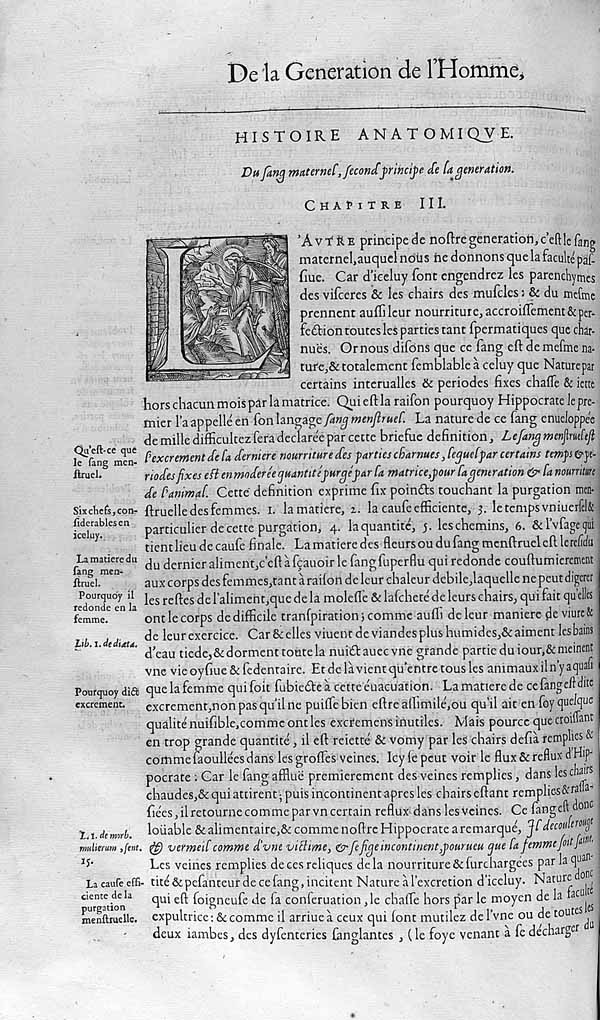 De la Generation de l'Homme,
HISTOIRE ANATOMIQVE.
Du sang maternel, second principe de la generation.
CHAPITRE III.
L'AVTRE principe de nostre generation, c'est le sang
maternel, auquel nous ne donnons que la faculté pas-
siue. Car d'iceluy sont engendrez les parenchymes
des visceres & les chairs des muscles: & du mesme
prennent aussi leur nourriture, accroissement & per-
fection toutes les parties tant spermatiques que char-
nuës. Or nous disons que ce sang est de mesme na-
ture, & totalement semblable à celuy que Nature par
certains interualles & periodes fixes chasse & iette
hors chacun mois par la matrice. Qui est la raison pourquoy Hippocrate le pre-
mier l'a appellé en son langage sang menstruel. La nature de ce sang enueloppée
de mille difficultez sera declarée par cette briefue definition, Le sang menstruel est
l'excrement de la derniere nourriture des parties charnues, lequel par certains temps & pe-
riodes fixes est en moderée quantité purgé par la matrice, pour la generation & la nourriture
de l'animal. Cette definition exprime six poincts touchant la purgation men-
struelle des femmes. 1. la matiere, 2. la cause efficiente, 3. le temps vniuersel &
particulier de cette purgation, 4. la quantité, 5. les chemins, 6. & l'vsage qui
tient lieu de cause finale. La matiere des fleurs ou du sang menstruel est le residu
du dernier aliment, c'est à sçauoir le sang superflu qui redonde coustumierement
aux corps des femmes, tant à raison de leur chaleur debile, laquelle ne peut digerer
les restes de l'aliment, que de la molesse & lascheté de leurs chairs, qui fait qu'elles
ont le corps de difficile transpiration; comme aussi de leur maniere de viure &
de leur exercice. Car & elles viuent de viandes plus humides, & aiment les bains
d'eau tiede, & dorment toute la nuict auec vne grande partie du iour, & meinent
vne vie oysiue & sedentaire. Et de là vient qu'entre tous les animaux il n'y a quasi
que la femme qui soit subiecte à cette éuacuation. La matiere de ce sang est dite
excrement, non pas qu'il ne puisse bien estre assimilé, ou qu'il ait en soy quelque
qualité nuisible, comme ont les excremens inutiles. Mais pource que croissant
en trop grande quantité, il est reietté & vomy par les chairs desià remplies &
comme saoullées dans les grosses veines. Icy se peut voir le flux & reflux d'Hip-
pocrate: Car le sang affluë premierement des veines remplies, dans les chairs
chaudes, & qui attirent; puis incontinent apres les chairs estant remplies & rassa-
siées, il retourne comme par vn certain reflux dans les veines. Ce sang est donc
loüable & alimentaire, & comme nostre Hippocrate a remarqué, Il decoule rouge
& vermeil comme d'vne victime, & se fige incontinent, pourueu que la femme soit saine.
Les veines remplies de ces reliques de la nourriture & surchargées par la quan-
tité & pesanteur de ce sang, incitent Nature à l'excretion d'iceluy. Nature donc
qui est soigneuse de sa conseruation, le chasse hors par le moyen de la faculté
expultrice: & comme il arriue à ceux qui sont mutilez de l'vne ou de toutes les
deux iambes, des dysenteries sanglantes, (le foye venant à se décharger du
Qu'est-ce que
le sang men-
struel.
Six chefs, con-
siderables en
iceluy.
La matiere du
sang men-
struel.
Pourquoy il
redonde en la
femme.
Lib. 1. de diæta.
Pourquoy dict
excrement.
L. 1. de morb.
mulierum, sent.
15.
La cause effi-
ciente de la
purgation
menstruelle.